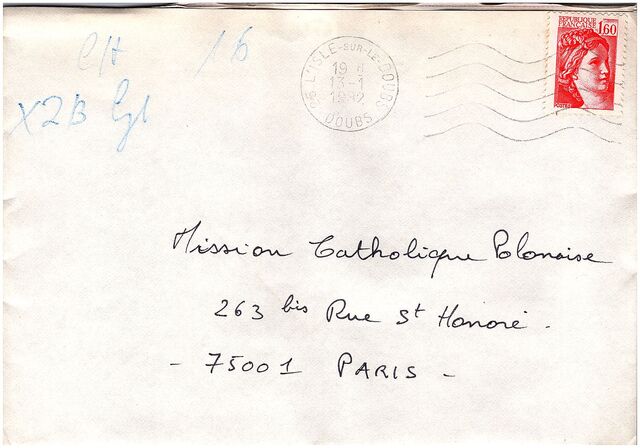 CH 16
X2B Cgl
RÉPUBLIQUE
FRANÇAISE
1,60
25 L'ISLE-SUR-LE-DOUBS
19 H
13-1
1982
DOUBS
Mission Catholique Polonaise
263 bis Rue St Honoré.
- 75001 PARIS -